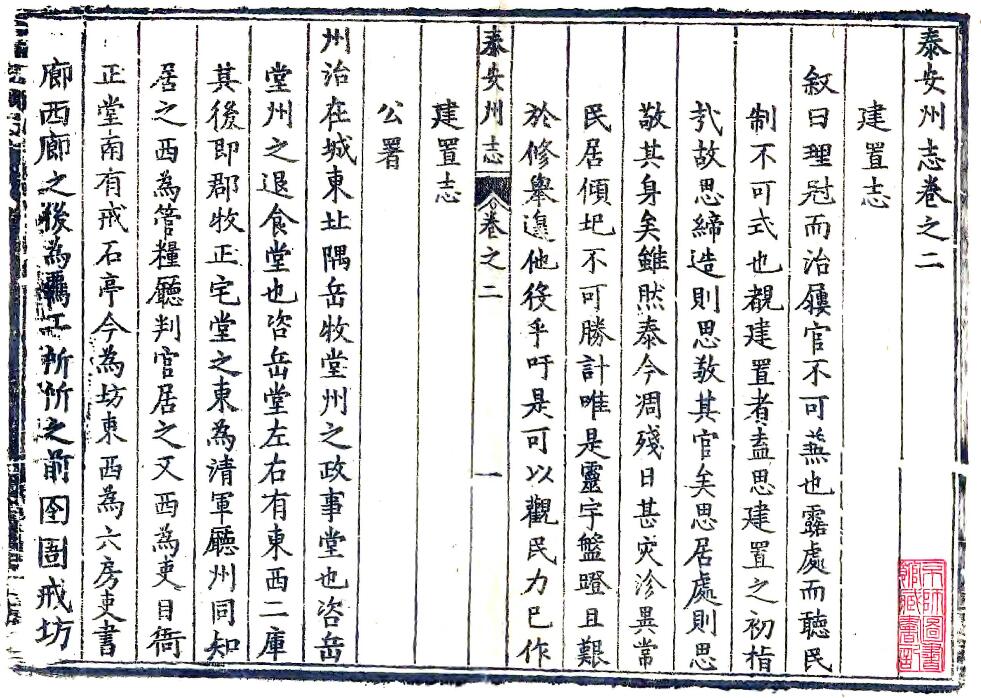 泰安州志卷之二
建置志
叙曰理冠而治屨官不可燕也露處而聽民
制不可式也覩建置者盍思建置之初指
弐故思締造則思敬其官矣思居處則思
敬其身矣雖然泰今凋殘日甚灾沴異常
民居傾圯不可勝計唯是靈宇盤蹬且艱
於修舉遑他役乎吁是可以觀民力已作
泰安州志 卷之二 一
建置志
公署
州治在城東北隅岳牧堂州之政事堂也咨岳
堂州之退食堂也咨岳堂左右有東西二庫
其後即郡牧正宅堂之東為清軍廳州同知
居之西為管糧廳判官居之又西為吏目衙
正堂南有戒石亭今為坊東西為六房吏書
廊西廊之後為 工所所之前囹圄戒坊
京師圖書館藏書記